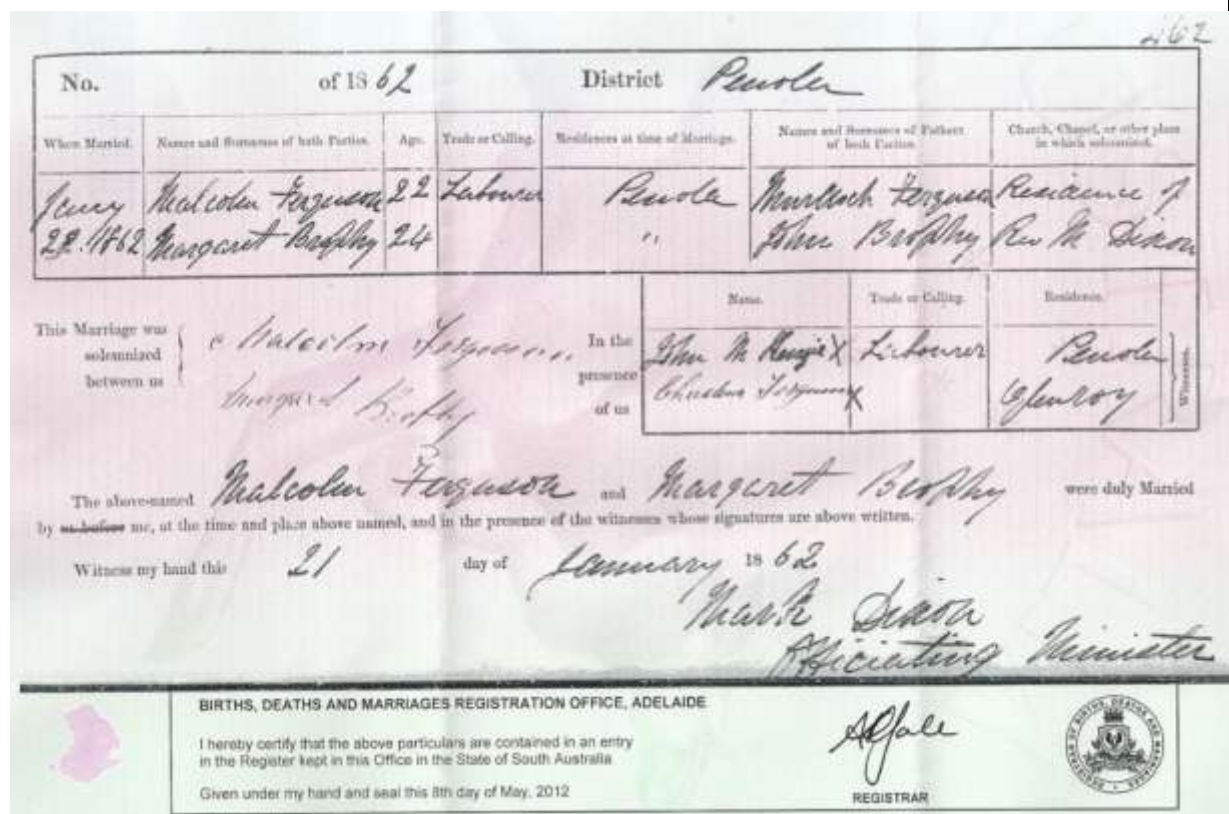 462
No. of 1862 District Penola
When Married. Names and Surnames of both Parties. Age. Trade or Calling. Residences at time of Marriage. Names and Surnames of Fathers of both Parties. Church, Chapel, or other place in which solemnized.
Jany Malcolm Ferguson 22 Labourer Penola Murdoch Ferguson Residence of
1862 Margaret Brophy 24 " John Brophy Rev M Dixon
Name. Trade or Calling. Residence.
This Marriage was solemnized between us Malcolm Ferguson In the presence of us John M Kenzie X Labourer Penola Witnesses.
Margaret Brophy Ferguson X Glenroy
The above-named Malcolm Ferguson and Margaret Brophy were duly Married
by or before me, at the time and place above named, and in the presence of the witnesses whose signatures are above written.
Witness my hand this 21 day of January 1862
Mark Dixon
Officiating Minister
BIRTHS, DEATHS AND MARRIAGES REGISTRATION OFFICE, ADELAIDE
I hereby certify that the above particulars are contained in an entry
in the Register kept in this Office in the State of South Australia
Given under my hand and seal this 8th day of May, 2012
REGISTRAR